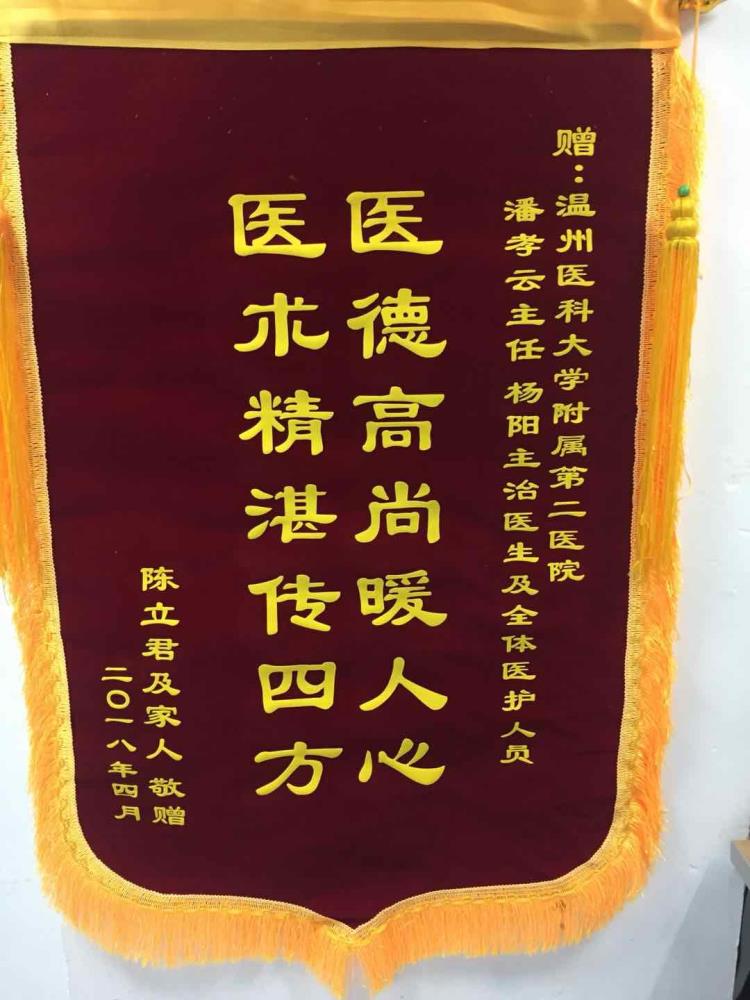 赠：温州医科大学附属第二医院
潘孝云主任 杨阳主治医生及全体医护人员
医德高尚暖人心
医术精湛传四方
陈立君及家人 敬赠
二〇一八年四月